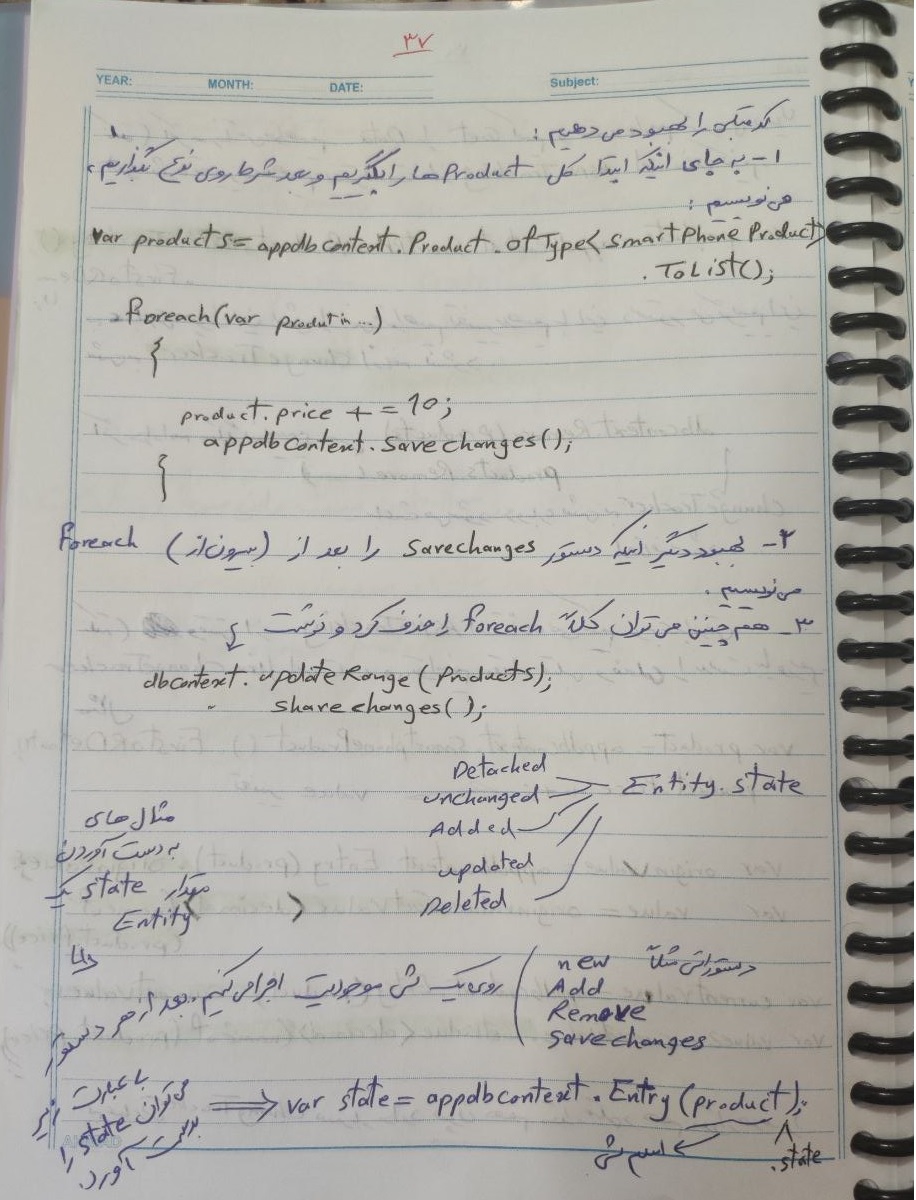 ۳۷
YEAR: MONTH: DATE: Subject:
کد قبلی را بهبود می دهیم:
۱- به جای اینکه ابتدا کل Product ها را بگیریم و بعد شرط روی نوع بگذاریم،
می نویسیم:
var products = appdbcontext.Product.ofType<SmartPhoneProduct>
.ToList();
foreach(var produt in ...)
{
product.price += 10;
appdbcontext.savechanges();
{
۲- بهبود دیگر اینکه دستور savechanges را بعد از (بیرون از) Foreach
می نویسیم.
۳- هم چنین می توان کلاً foreach را حذف کرد و نوشت
dbcontext.updateRange(Products);
sharechanges();
Entity.state
Detached
unchanged
Added
updated
Deleted
مثال های
به دست آوردن
مقدار state یک
Entity
دستوراتی مثلاً
new
Add
Remove
savechanges
روی یک شی موجودیت اجرا می کنیم. بعد از هر دستور
با عبارت زیر
می توان state را
بدست آورد.
⟹ var state = appdbcontext.Entry(product);
.state
اسم شی